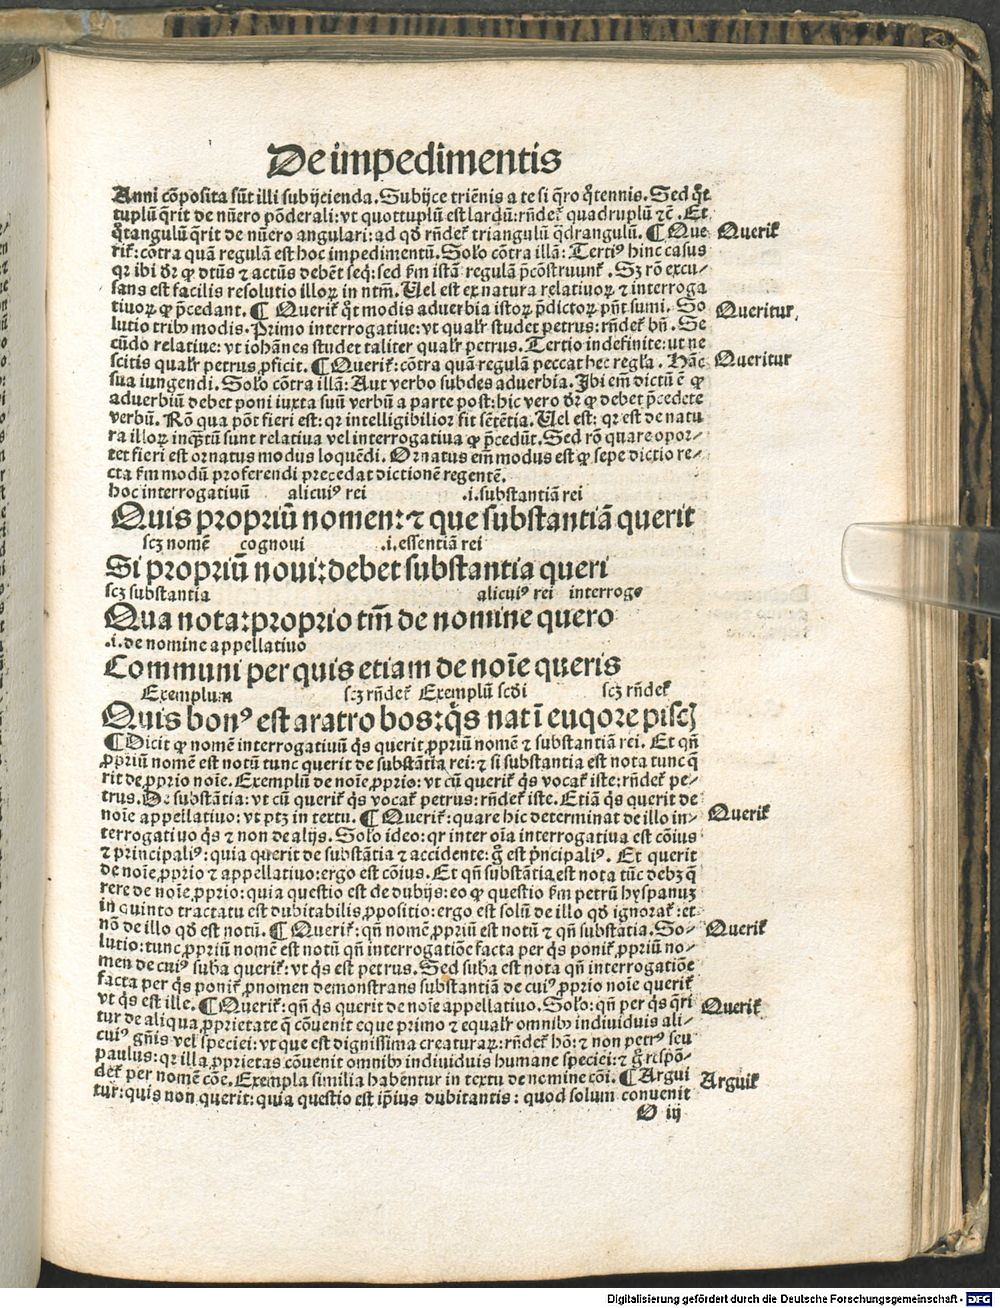 De impedimentis
Anni cōposita sūt illi subijcienda. Subijce triēnis a te si q̄ro q̊tennis. Sed q̊t
tuplū q̄rit de nūero pōderali: vt quottuplū est lardū: rñdet̃ quadruplū ⁊c̄. Et
q̊tangulū q̄rit de nūero angulari: ad qđ rñdet̃ triangulū q̈drangulū. ¶ Que
rit̃: cōtra quā regulā est hoc impedimentū. Solo cōtra illā: Terti⁹ hinc casus
qꝛ ibi dr̃ ꝙ dt̄us ⁊ actūs debēt seq̇: sed ẜm istā regulā p̄cōstruunt̃. Sꝫ rō excu-
sans est facilis resolutio illoꝝ in ntm̄. Uel est ex natura relatiuoꝝ ⁊ interroga
tiuoꝝ ꝙ p̄cedant. ¶ Querit̃ q̊t modis aduerbia istoꝝ p̄dictoꝝ pn̄t sumi. So
lutio trib⁹ modis. Primo interrogatiue: vt qualr̃ studet petrus: rñdet̃ bn̄. Se
cūdo relatiue: vt iohānes studet taliter qualr̃ petrus. Tertio indefinite: ut ne
scitis qualr̃ petrus ꝓficit. ¶ Querit̃: cōtra quā regulā peccat hec regl̃a. Hāc
sua iungendi. Solo cōtra illā: Aut verbo subdes aduerbia. Ibi em̄ dictū ē ꝙ
aduerbiū debet poni iuxta suū verbū a parte post: hic vero dr̃ ꝙ debet p̄cedere
verbū. Rō qua pōt fieri est: qꝛ intelligibilior fit sētētia. Uel est: qꝛ est de natu
ra illoꝝ inq̈tū sunt relatiua vel interrogatiua ꝙ p̄cedūt. Sed rō quare opor-
tet fieri est ornatus modus loquēdi. Ornatus em̄ modus est ꝙ sepe dictio re-
cta ẜm modū proferendi precedat dictionē regentē.
hoc interrogatiuū alicui⁹ rei .i. substantiā rei
Quis propriū nomen: ⁊ que substantiā querit
scꝫ nomē cognoui .i. essentiā rei
Si propriū noui: debet substantia queri
scꝫ substantia alicui⁹ rei interrogo
Qua nota: proprio tm̄ de nomine quero
.i. de nomine appellatiuo
Communi per quis etiam de noīe queris
Exemplum scꝫ rñdet̃ Exemplū scđi scꝫ rñdet̃
Quis bon⁹ est aratro bos: q̇s nat ī euqore piscꝫ
¶ Dicit ꝙ nomē interrogatiuū q̇s querit ꝓpriū nomē ⁊ substantiā rei. Et qn̄
ꝓpriū nomē est notū tunc querit de substātia rei: ⁊ si substantia est nota tunc q̄
rit de ꝓprio noīe. Exemplū de noīe ꝓprio: vt cū querit̃ q̇s vocat̃ iste: rñdet̃ pe-
trus. De substātia: vt cū querit̃ q̇s vocat̃ petrus: rñdet̃ iste. Etiā q̇s querit de
noīe appellatiuo: vt ptꝫ in textu. ¶ Querit̃: quare hic determinat de illo in-
terrogatiuo q̇s ⁊ non de alijs. Solo ideo: qꝛ inter oīa interrogatiua est cōius
⁊ principali⁹: quia querit de substātia ⁊ accidente: g̊ est p̄ncipali⁹. Et querit
de noīe ꝓprio ⁊ appellatiuo: ergo est cōius. Et qn̄ substātia est nota tūc debꝫ q̄
rere de noīe ꝓprio: quia questio est de dubijs: eo ꝙ questio ẜm petrū hyspanuꝫ
in quinto tractatu est dubitabilis ꝓpositio: ergo est solū de illo qđ ignorat̃: et
nō de illo qđ est notū. ¶ Querit̃: qn̄ nomē ꝓpriū est notū ⁊ qn̄ substātia. So-
lutio: tunc ꝓpriū nomē est notū qn̄ interrogatiōe facta per q̇s ponit̃ ꝓpriū no-
men de cui⁹ suba querit̃: vt q̇s est petrus. Sed suba est nota qn̄ interrogatiōe
facta per q̇s ponit̃ ꝓnomen demonstrans substantiā de cui⁹ ꝓprio noīe querit̃
vt q̇s est ille. ¶ Querit̃: qn̄ q̇s querit de noīe appellatiuo. Solo: qn̄ per q̇s q̄ri
tur de aliqua ꝓprietate q̄ cōuenit eque primo ⁊ equalr̃ omnibꝰ indiuiduis ali-
cui⁹ gn̄is vel speciei: vt que est dignissima creaturaꝝ: rñdet̃ hō: ⁊ non petr⁹ seu
paulus: qꝛ illa ꝓprietas cōuenit omnibꝰ indiuiduis humane speciei: ⁊ g̊ respō-
det̃ per nomē cōe. Exempla similia habentur in textu de nomine cōi. ¶ Argui
tur: quis non querit: quia questio est ip̄ius dubitantis: quod solum conuenit
O iij
Querit̃
Queritur.
Queritur
Querit̃
Querit̃
Querit̃
Arguit̃
Digitalisierung gefördert durch die Deutsche Forschungsgemeinschaft - DFG